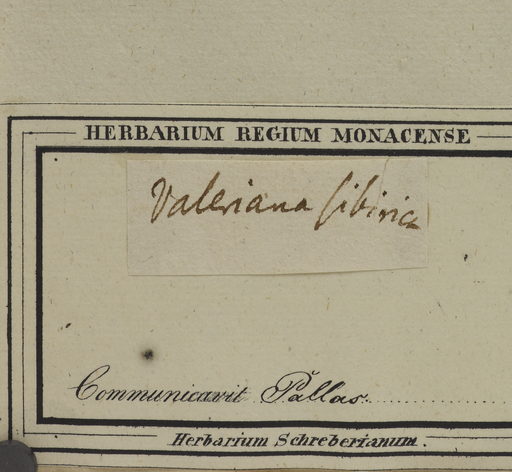 HERBARIUM REGIUM MONACENSE
Valeriana sibirica
Communicavit Pallas
Herbarium Schreberianum.